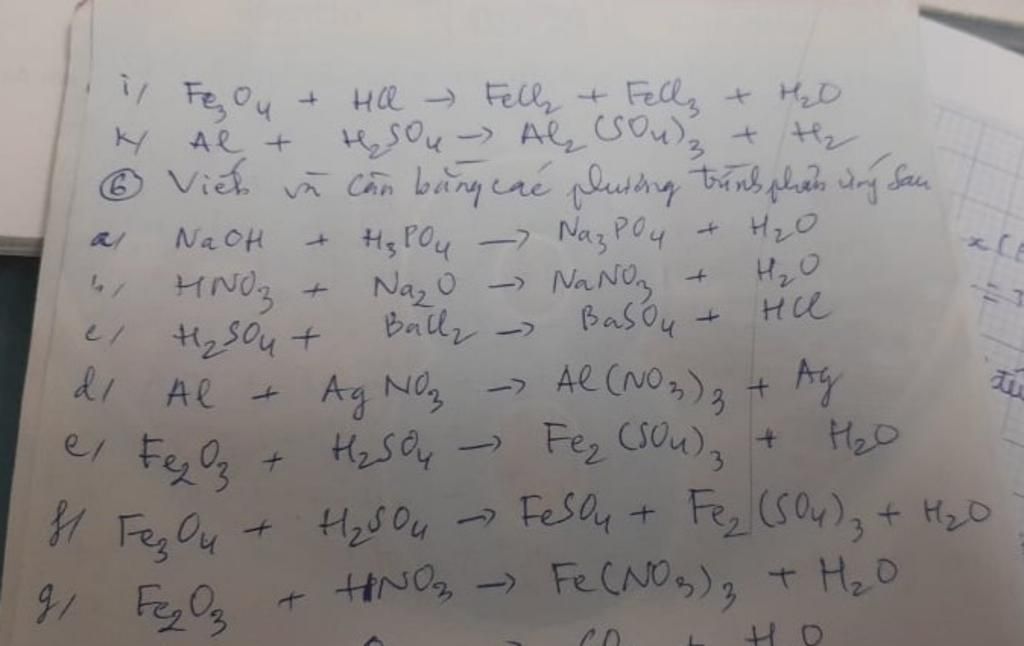 i/ Fe₃O₄ + HCl → FeCl₂ + FeCl₃ + H₂O
k/ Al + H₂SO₄ → Al₂(SO₄)₃ + H₂
⑥ Viết và cân bằng các phương trình phản ứng sau
a/ NaOH + H₃PO₄ → Na₃PO₄ + H₂O
b/ HNO₃ + Na₂O → NaNO₃ + H₂O
c/ H₂SO₄ + BaCl₂ → BaSO₄ + HCl
d/ Al + AgNO₃ → Al(NO₃)₃ + Ag
e/ Fe₂O₃ + H₂SO₄ → Fe₂(SO₄)₃ + H₂O
f/ Fe₃O₄ + H₂SO₄ → FeSO₄ + Fe₂(SO₄)₃ + H₂O
g/ Fe₂O₃ + HNO₃ → Fe(NO₃)₃ + H₂O